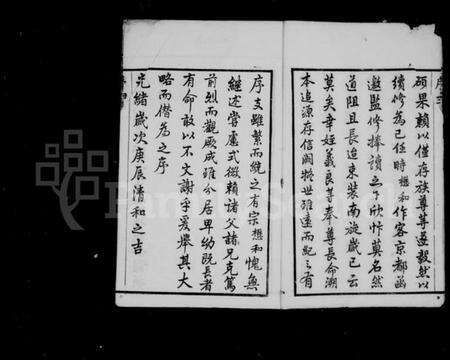 碩果賴以僅存族尊等並毅然以
續修為己任時想和作客京都函
邀監修捧讀之下欣忭莫名然
道阻且長迨束裝南旋歲已云
莫矣幸姪義良等奉尊長命溯
本追源存信闕將世雖遠而紀之有
序支雖繁而統之有宗想和愧無
繼述嘗廬式微賴諸父諸兄克篤
前烈而觀厥成雖分居卑幼既長者
有命敢以不文謝乎爰舉其大
略而僭為之序
光緒歲次庚辰清和之吉